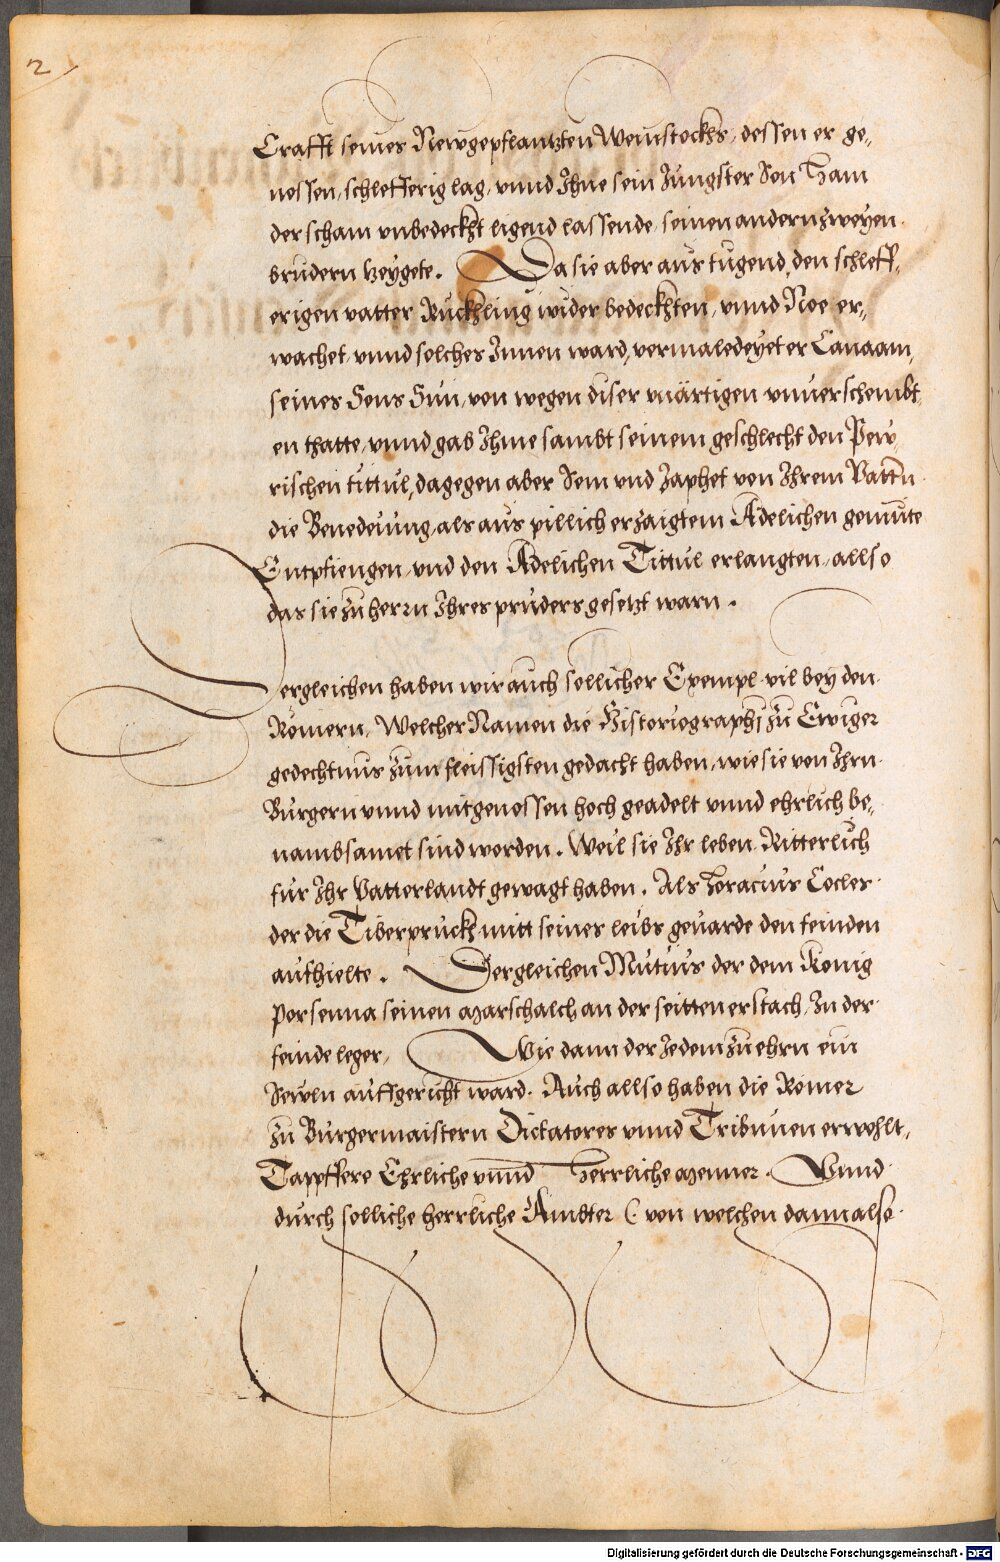 2
Crafft seines Newgepflantzten Weinstockhs, dessen er ge„
nossen, schlefferig lag, vnnd Ihne sein Jungster Son Ham
der scham vnbedeckht ligend lassende, seinen andern zweyen
brüdern zeygete. Da sie aber aus tugend, den schleff„
erigen vatter Rückhling wider bedeckhten, vnnd Noe er„
wachet vnnd solches Innen ward, vermaledeyet er Canaam,
seines Sons Sun, von wegen diser vnärtigen vnuerschembt
en thatte, vnnd gab Ihme sambt seinem geschlecht den Pew
rischen tittul, dagegen aber Sem vnd Japhet von Ihrem Vattern
die Benedeiung, als aus pillich erzaigtem Adelichen gemüte
Entpfiengen, vnd den Adelichen Tittul erlangten, allso
das sie zu herrn Ihres pruders gesetzt warn.
Dergleichen haben wir auch sollicher Exempl vil bey den
Römern, Welcher Namen die Historiographj zu Ewiger
gedechtnus zum fleissigsten gedacht haben, wie sie von Ihrn
Burgern vnnd mitgenossen hoch geadelt vnnd ehrlich be„
nambsamet sind worden. Weil sie Ihr leben Ritterlich
für Ihr Vatterlandt gewagt haben. Als Horacius Cocles
der die Tiberpruckh mitt seines leibs geuarde den feinden
aufhielte. Dergleichen Mutius der dem König
Porsenna seinen Marschalch an der seitten erstach, In der
feinde leger, Wie dann der Jedem zu ehrn ein
Sewln auffgericht ward. Auch allso haben die Römer
zu Burgermaistern Dictatores vnnd Tribunen erwohlt,
Tappffere Ehrliche vnnd Herrliche Menner. Vnnd
durch solliche herrliche Ämbter (von welchen dannalso
Digitalisierung gefördert durch die Deutsche Forschungsgemeinschaft - DFG